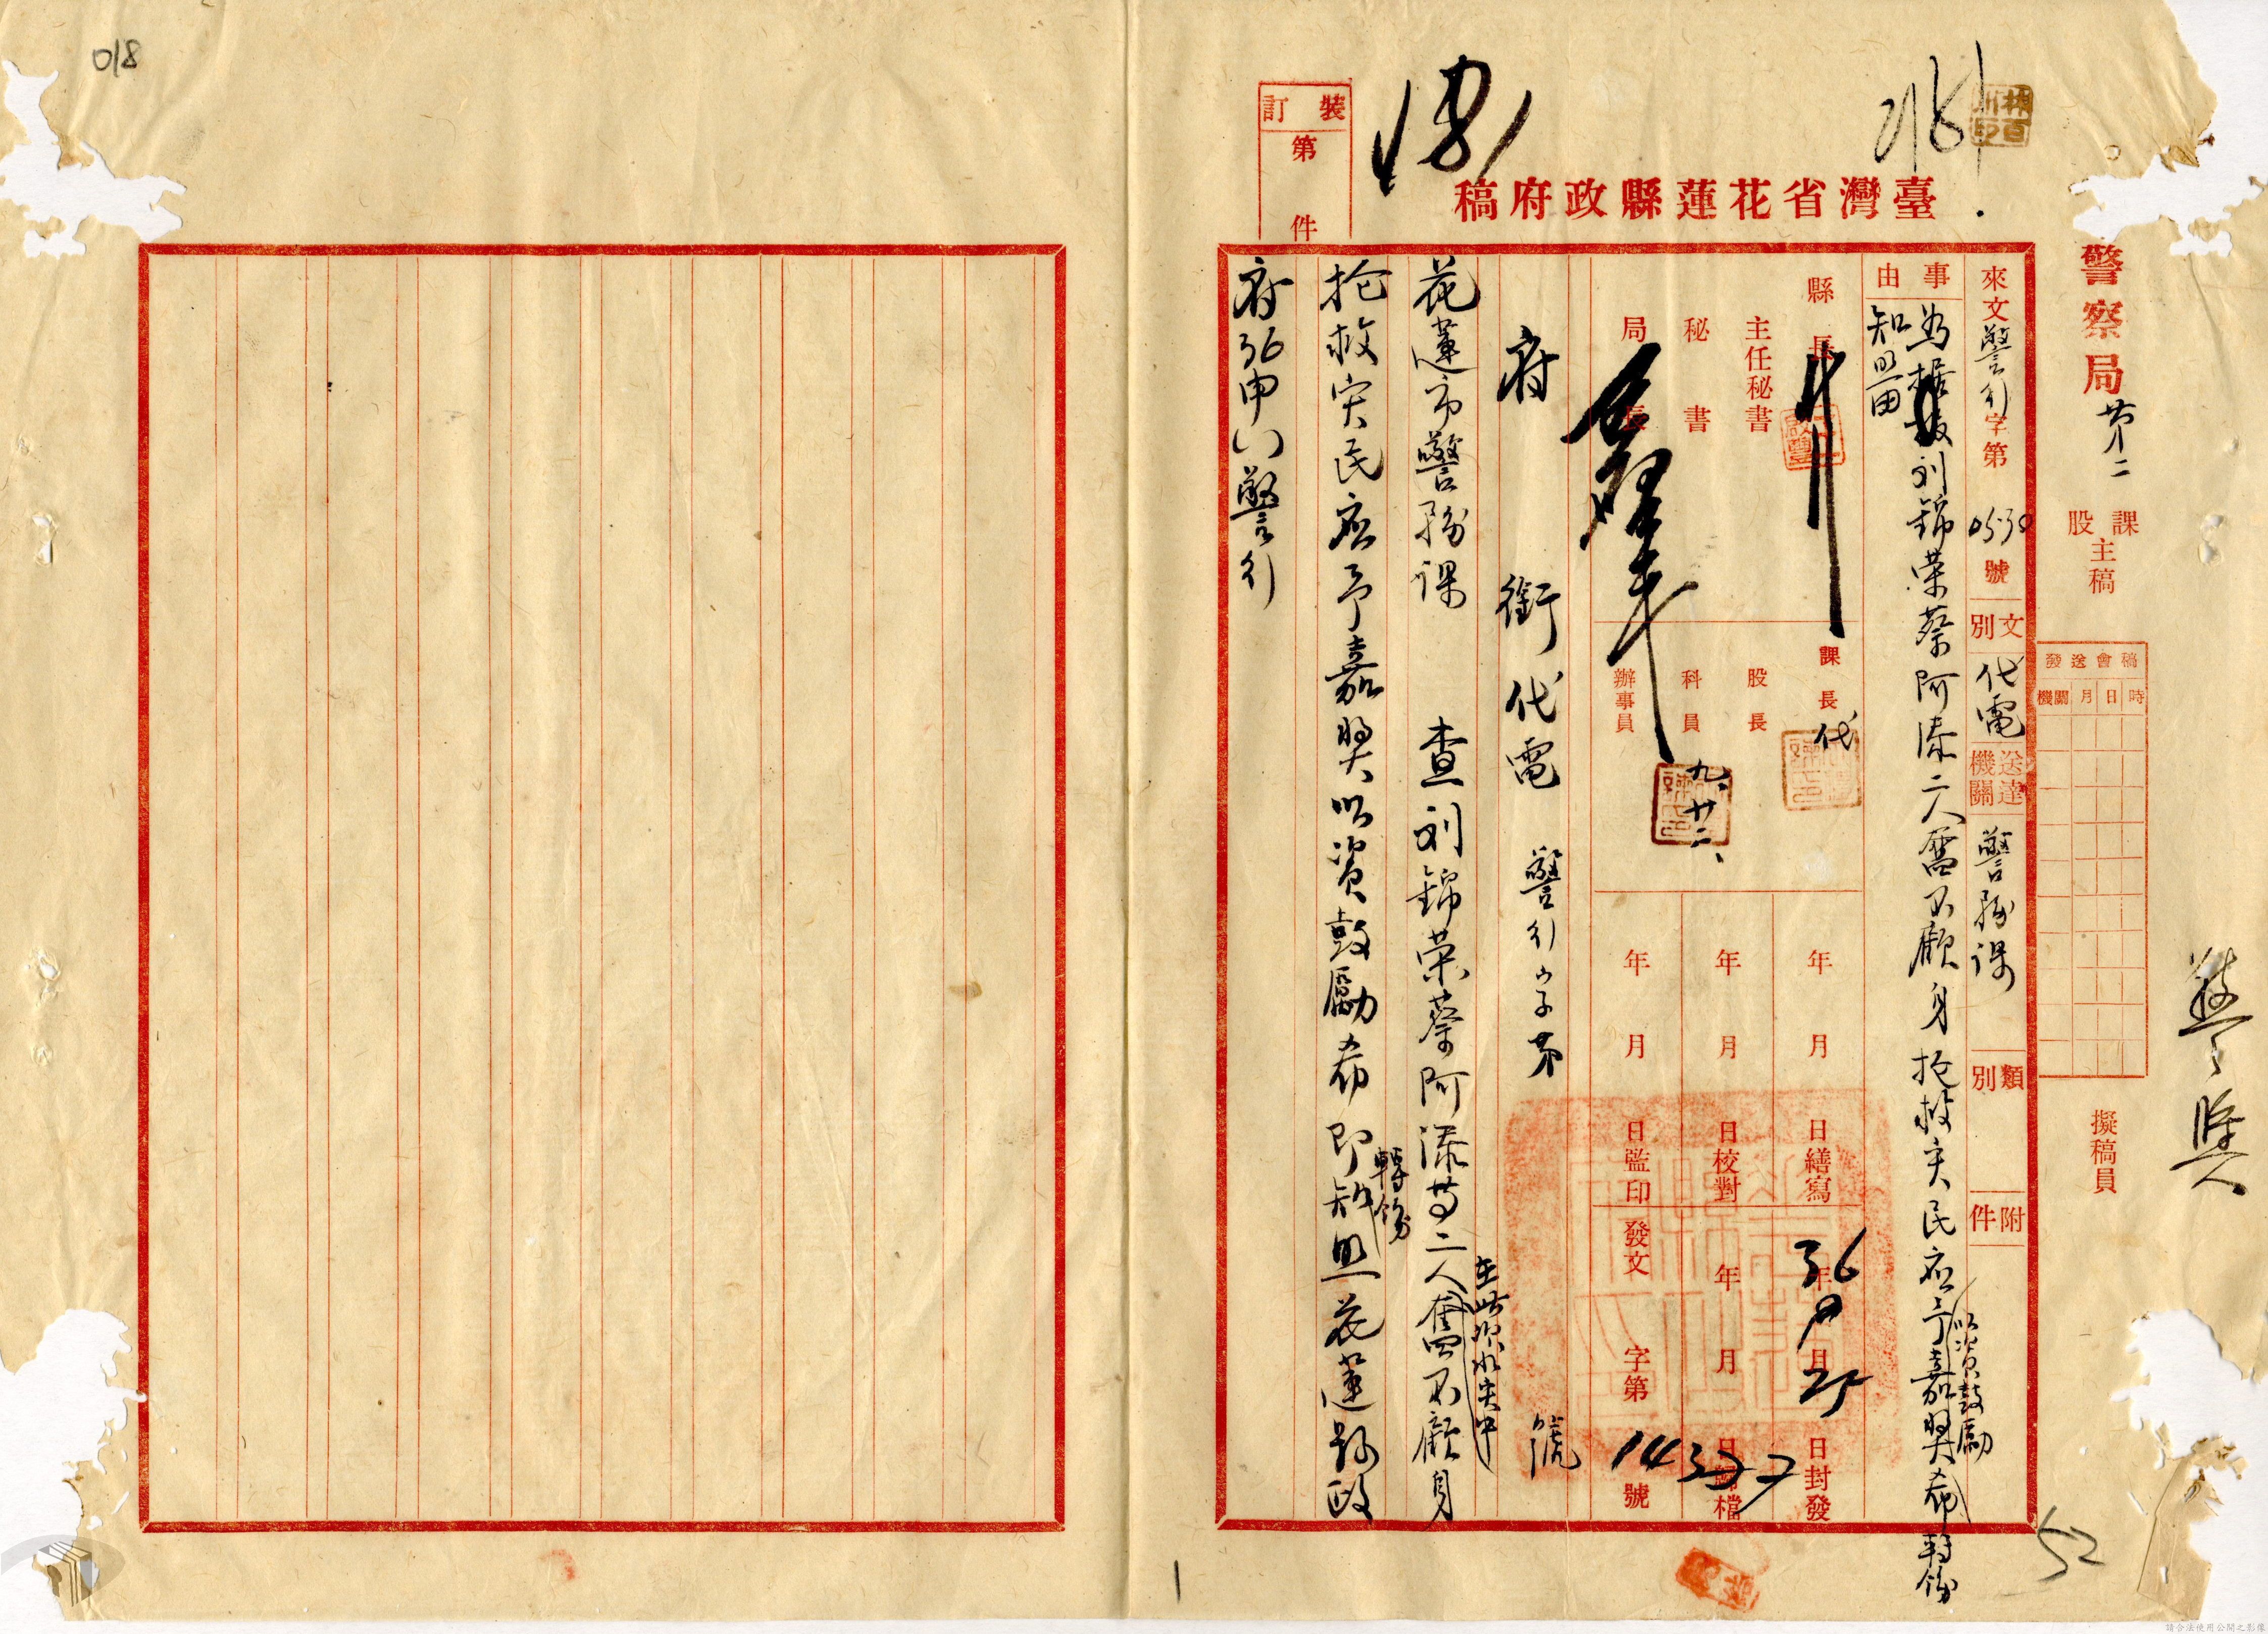 018
警獎
警察局 第二 課股主稿 擬稿員
稿會送發
時 日 月 機關
52
臺灣省花蓮縣政府稿
裝訂 第 件
來文 警行 字第 0530 號 文別 代電 送達機關 警務課 類別 附件
事由 為據報刘錦荣蔡阿添二人奮不顧身抢救灾民应予嘉奬以資鼓勵希轉飭
知照由
縣長 課長 代
主任秘書 股長
秘書 科員
局長 辦事員
九、廿二、
年 月 日繕寫 36年9月25日封發
年 月 日校對 年 月 日歸檔
年 月 日監印 發文 字第 14337 號
府 銜 代電 警行字第 號
花蓮市警務课 查刘錦荣蔡阿添等二人在此次水灾中奮不顧身
抢救灾民应予嘉奬以資鼓勵希即轉飭知照花蓮縣政
府36申 警行